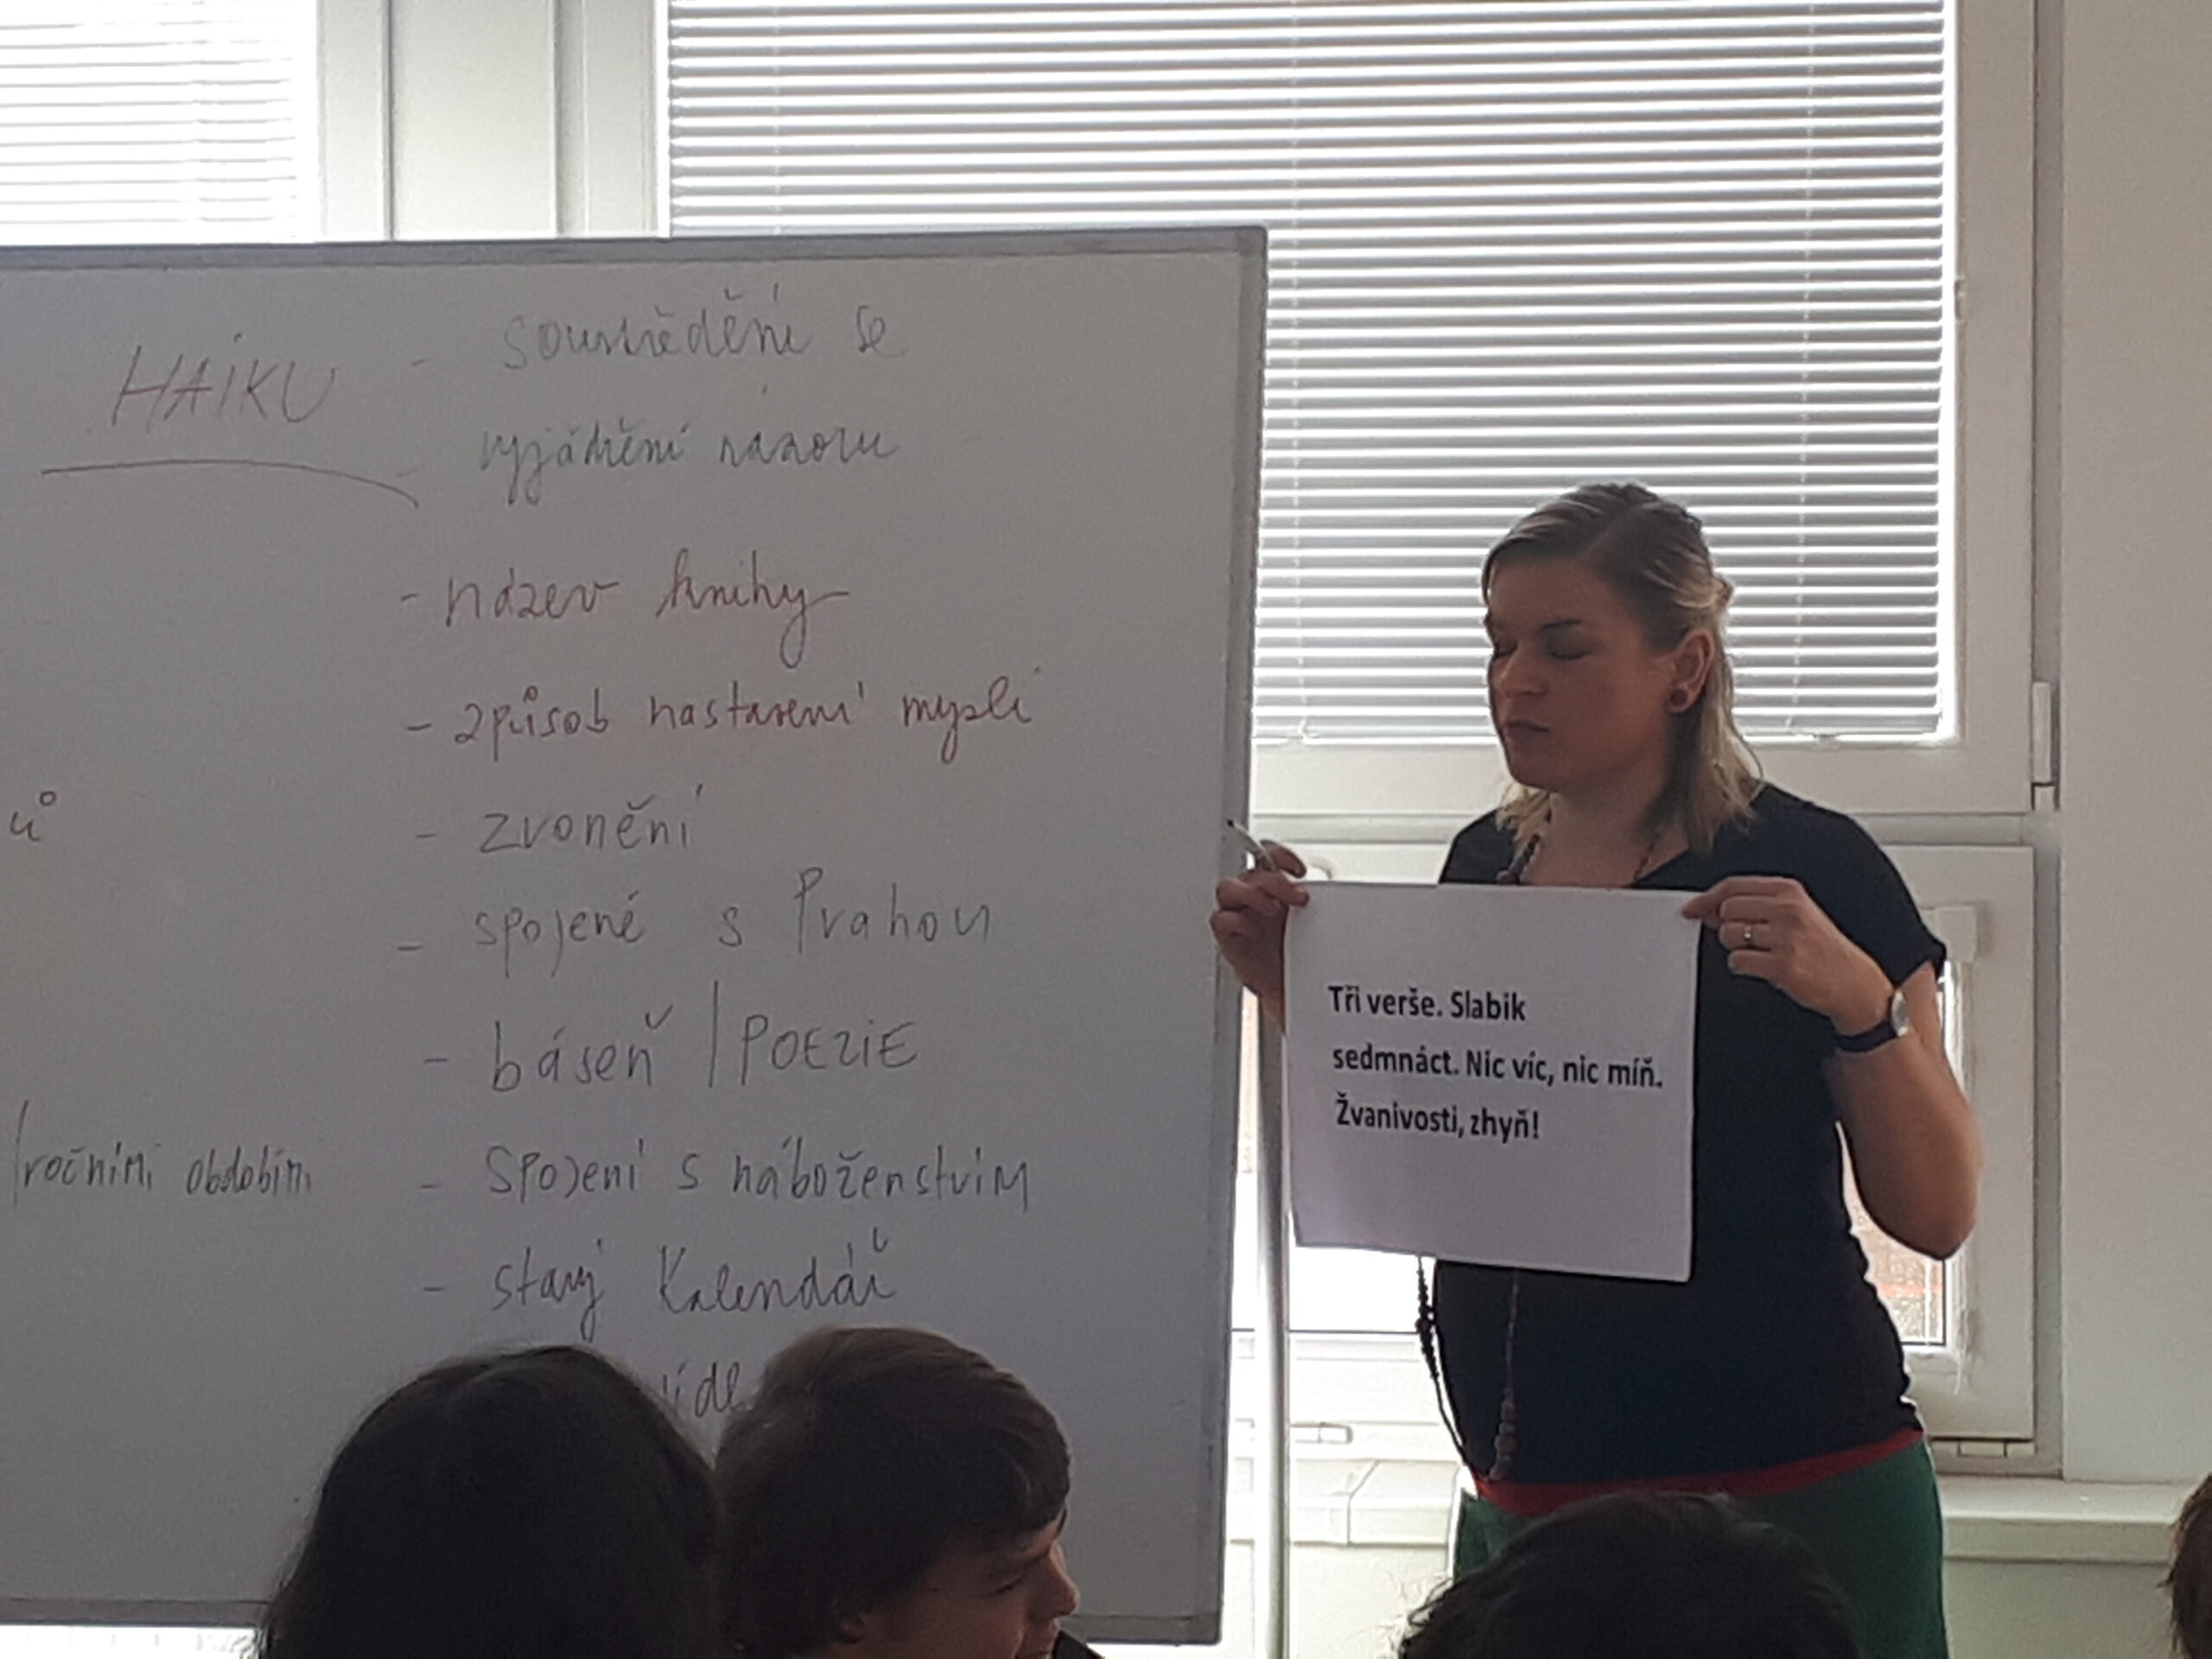 HAIKU - soustředění se
- vyjádření názoru
- název knihy
- způsob nastavení mysli
- zvonění
- spojené s Prahou
- báseň / POEZIE
/ročními obdobími - spojení s náboženstvím
- starý Kalendář
Tři verše. Slabik
sedmnáct. Nic víc, nic míň.
Žvanivosti, zhyň!